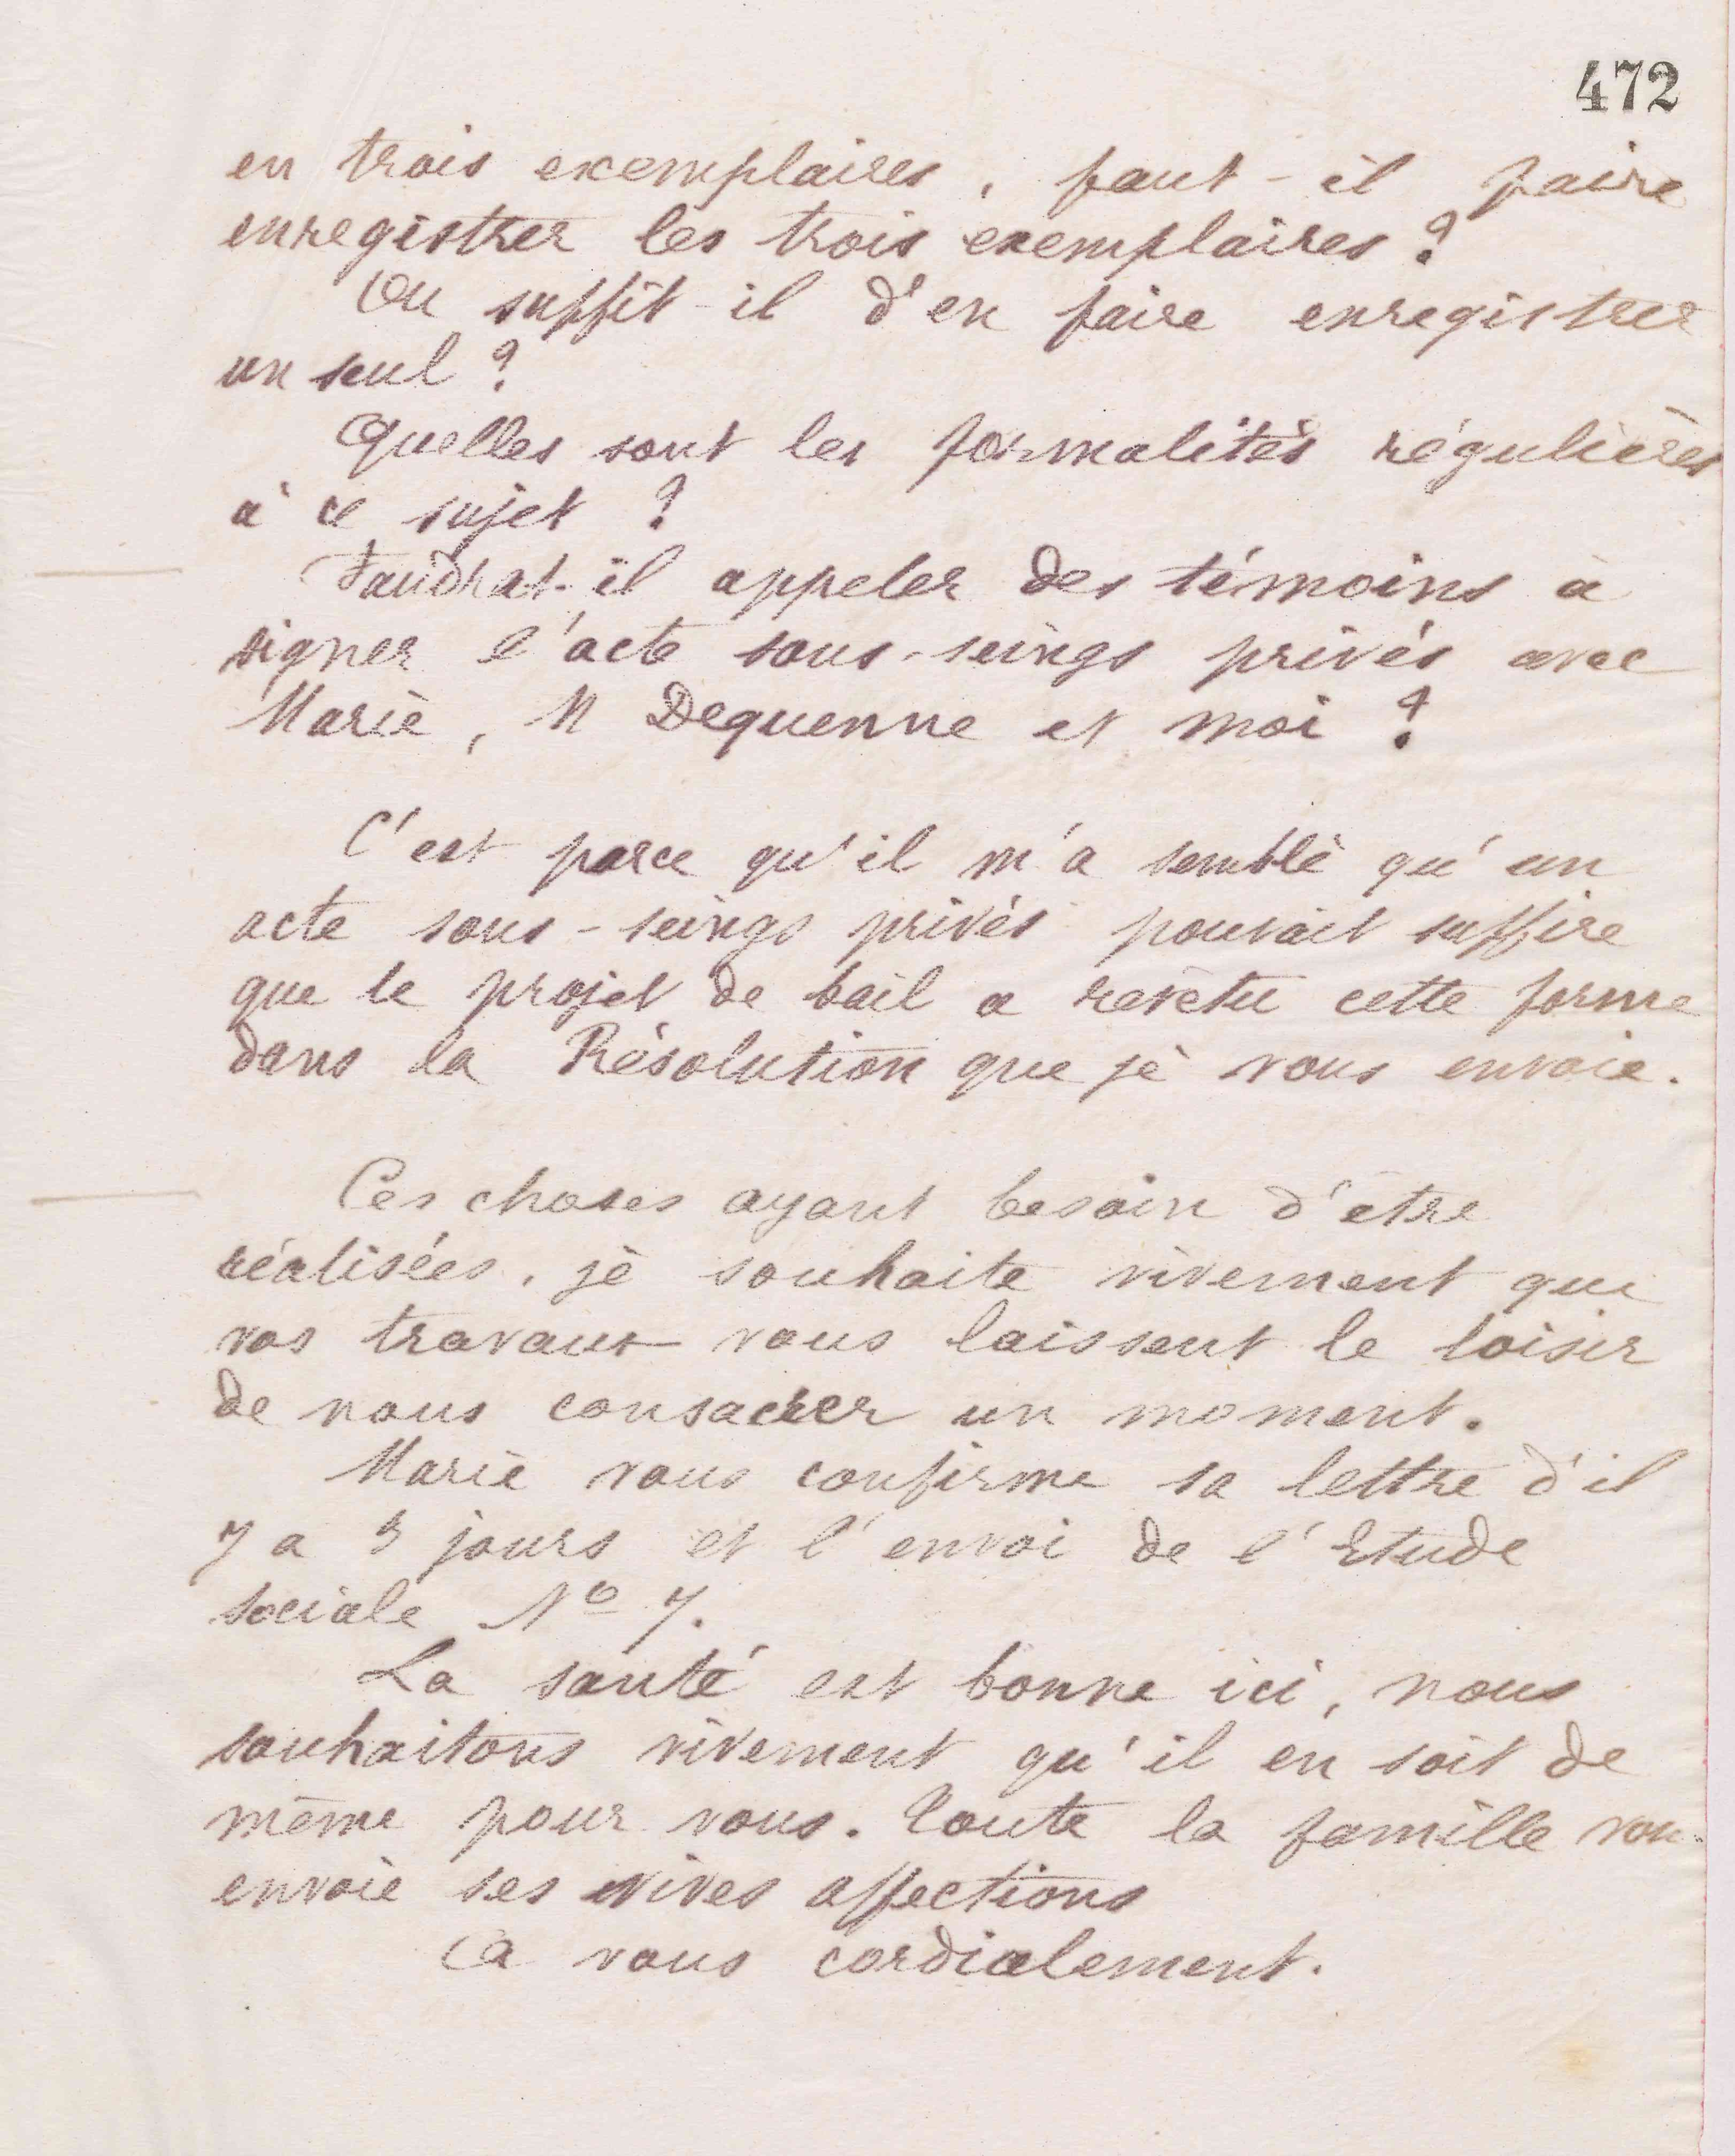 472
en trois exemplaires, faut-il faire
enregistrer les trois exemplaires ?
Ou suffit-il d'en faire enregistrer
un seul ?
Quelles sont les formalités régulières
à ce sujet ?
Faudrat-il appeler des témoins à
signer l'acte sous-seings privés avec
Marie, M Dequenne et moi ?
C'est parce qu'il m'a semblé qu'un
acte sous-seings privés pouvait suffire
que le projet de bail a revêtu cette forme
dans la Résolution que je vous envoie.
Ces choses ayant besoin d'être
réalisées, je souhaite vivement que
vos travaux vous laissent le loisir
de nous consacrer un moment.
Marie vous confirme sa lettre d'il
y a jours et l'envoi de l'Etude
sociale No 7.
La santé est bonne ici, nous
souhaitons vivement qu'il en soit de
même pour vous. Toute la famille vou
envoie ses vives affections
A vous cordialement.